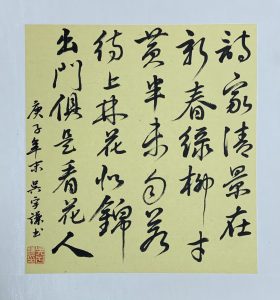 詩家清景在
新春綠柳才
黄半未勻若
待上林花似錦
出門俱是看花人
庚子年末吴宇謙书